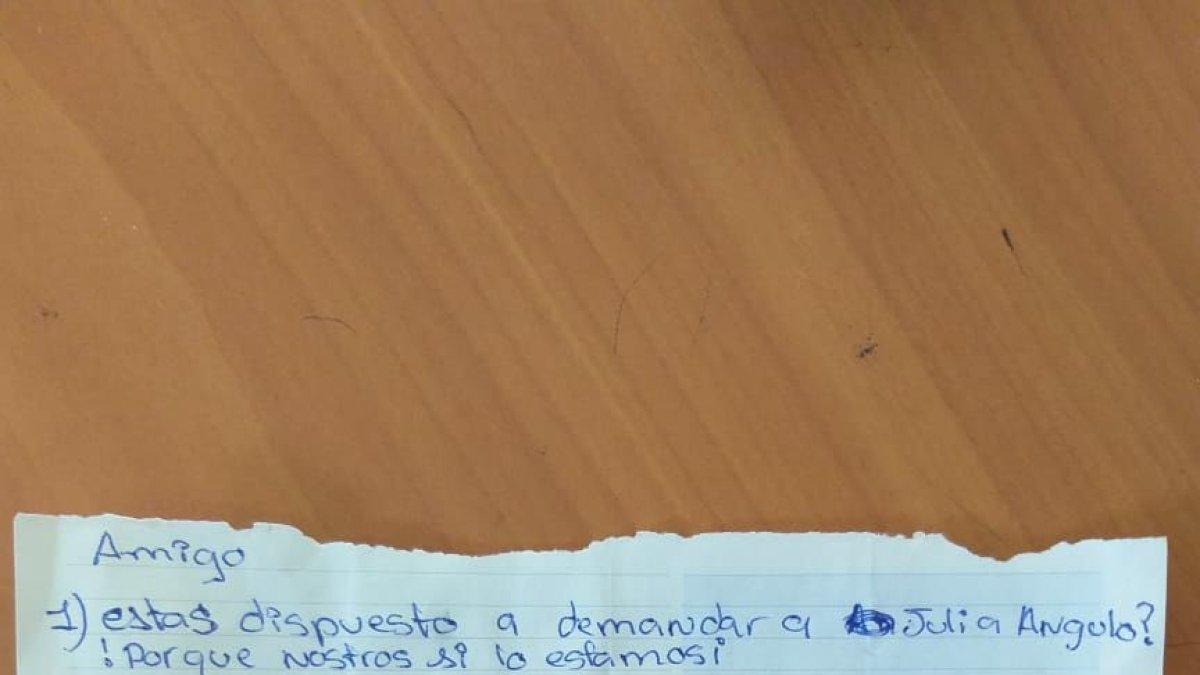 Amigo
1) estas dispuesto a demandar a Julia Angulo?
! Porque nostros si lo estamos¡